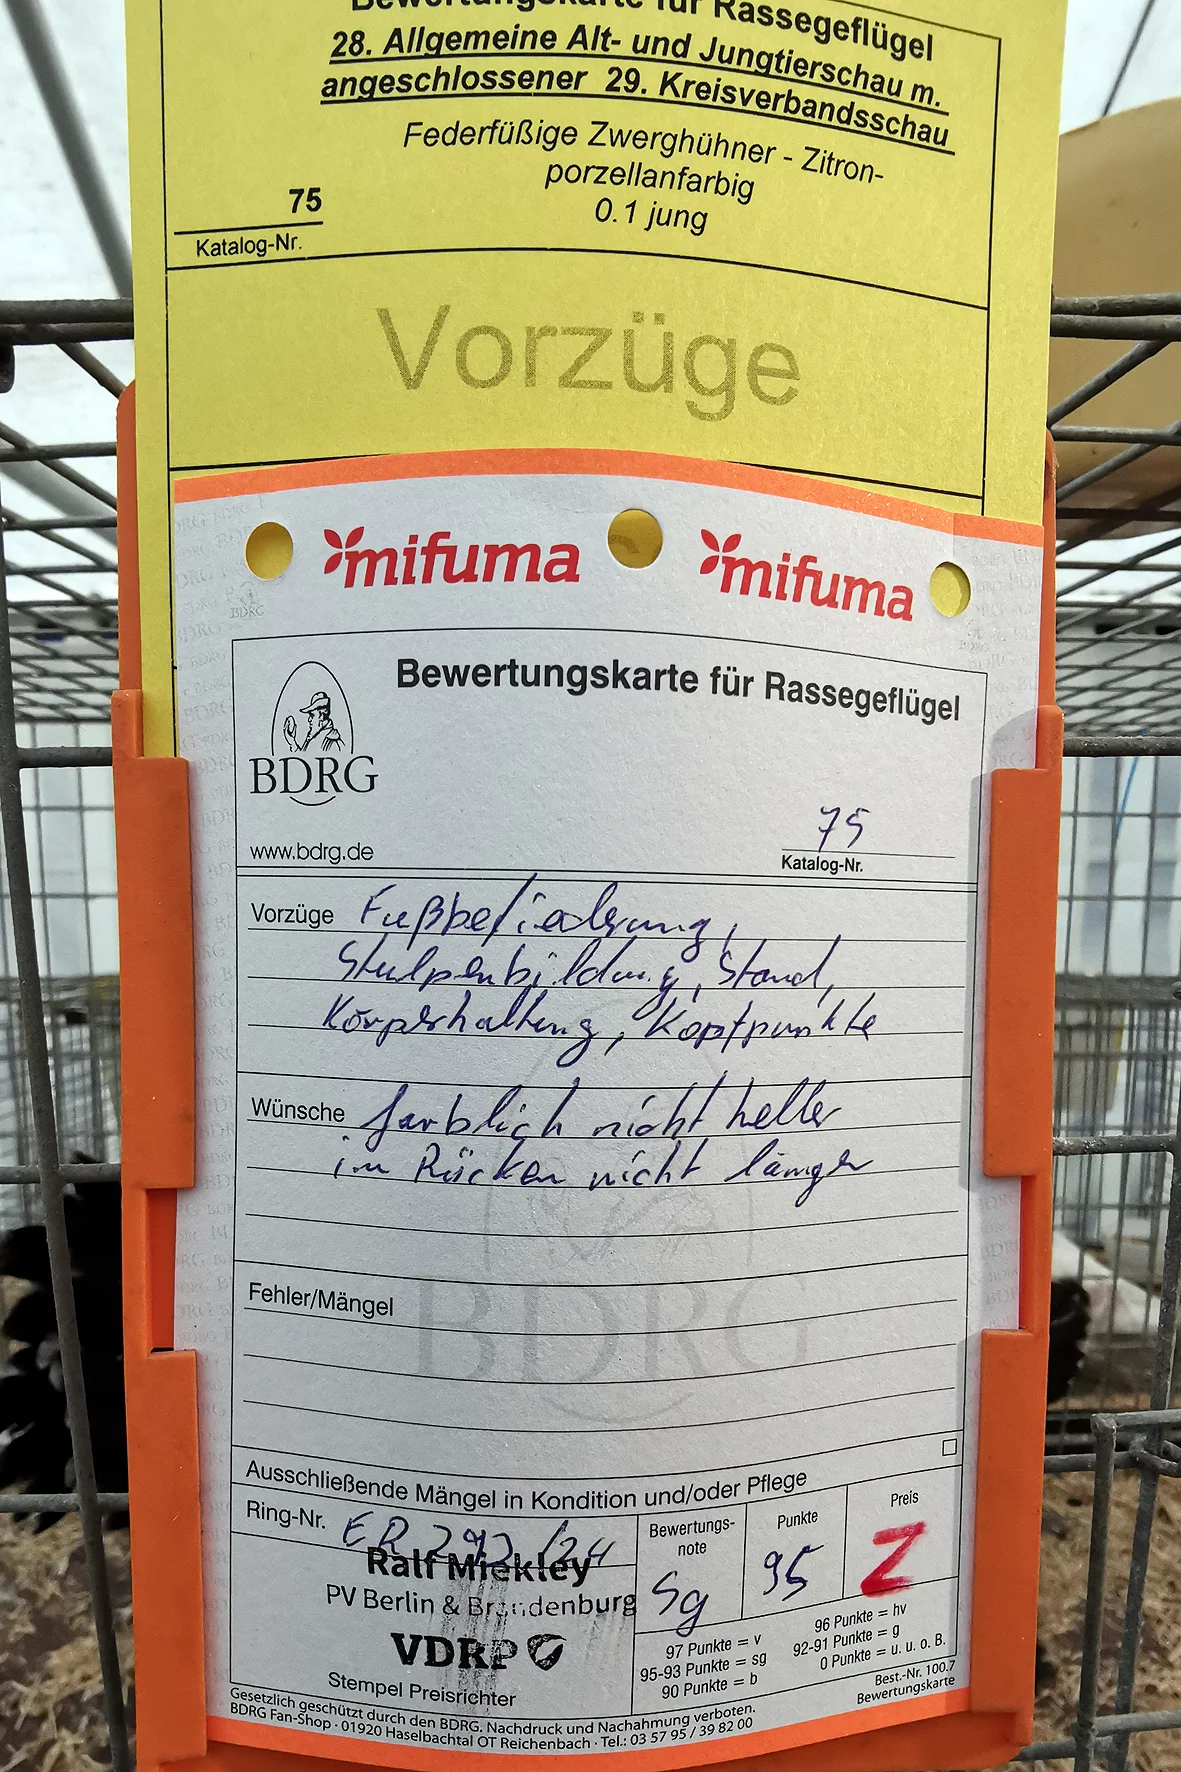 Bewertungskarte für Rassegeflügel
28. Allgemeine Alt- und Jungtierschau m.
angeschlossener 29. Kreisverbandsschau
Federfüßige Zwerghühner - Zitron-
porzellanfarbig
0.1 jung
75
Katalog-Nr.
Vorzüge
mifuma mifuma
Bewertungskarte für Rassegeflügel
BDRG
www.bdrg.de
75
Katalog-Nr.
Vorzüge Fußbefiederung,
Stulpenbildung, Stand,
Körperhaltung, Kopfpunkte
Wünsche farblich nicht heller
im Rücken nicht länger
Fehler/Mängel
BDRG
Ausschließende Mängel in Kondition und/oder Pflege
Ring-Nr. ER 292 /24
Ralf Miekley
PV Berlin & Brandenburg
VDRP
Stempel Preisrichter
Bewertungs-
note
Sg
Punkte
95
Preis
Z
97 Punkte = v
95-93 Punkte = sg
90 Punkte = b
96 Punkte = hv
92-91 Punkte = g
0 Punkte = u. u. o. B.
Best.-Nr. 100.7
Bewertungskarte
Gesetzlich geschützt durch den BDRG. Nachdruck und Nachahmung verboten.
BDRG Fan-Shop · 01920 Haselbachtal OT Reichenbach · Tel.: 03 57 95 / 39 82 00